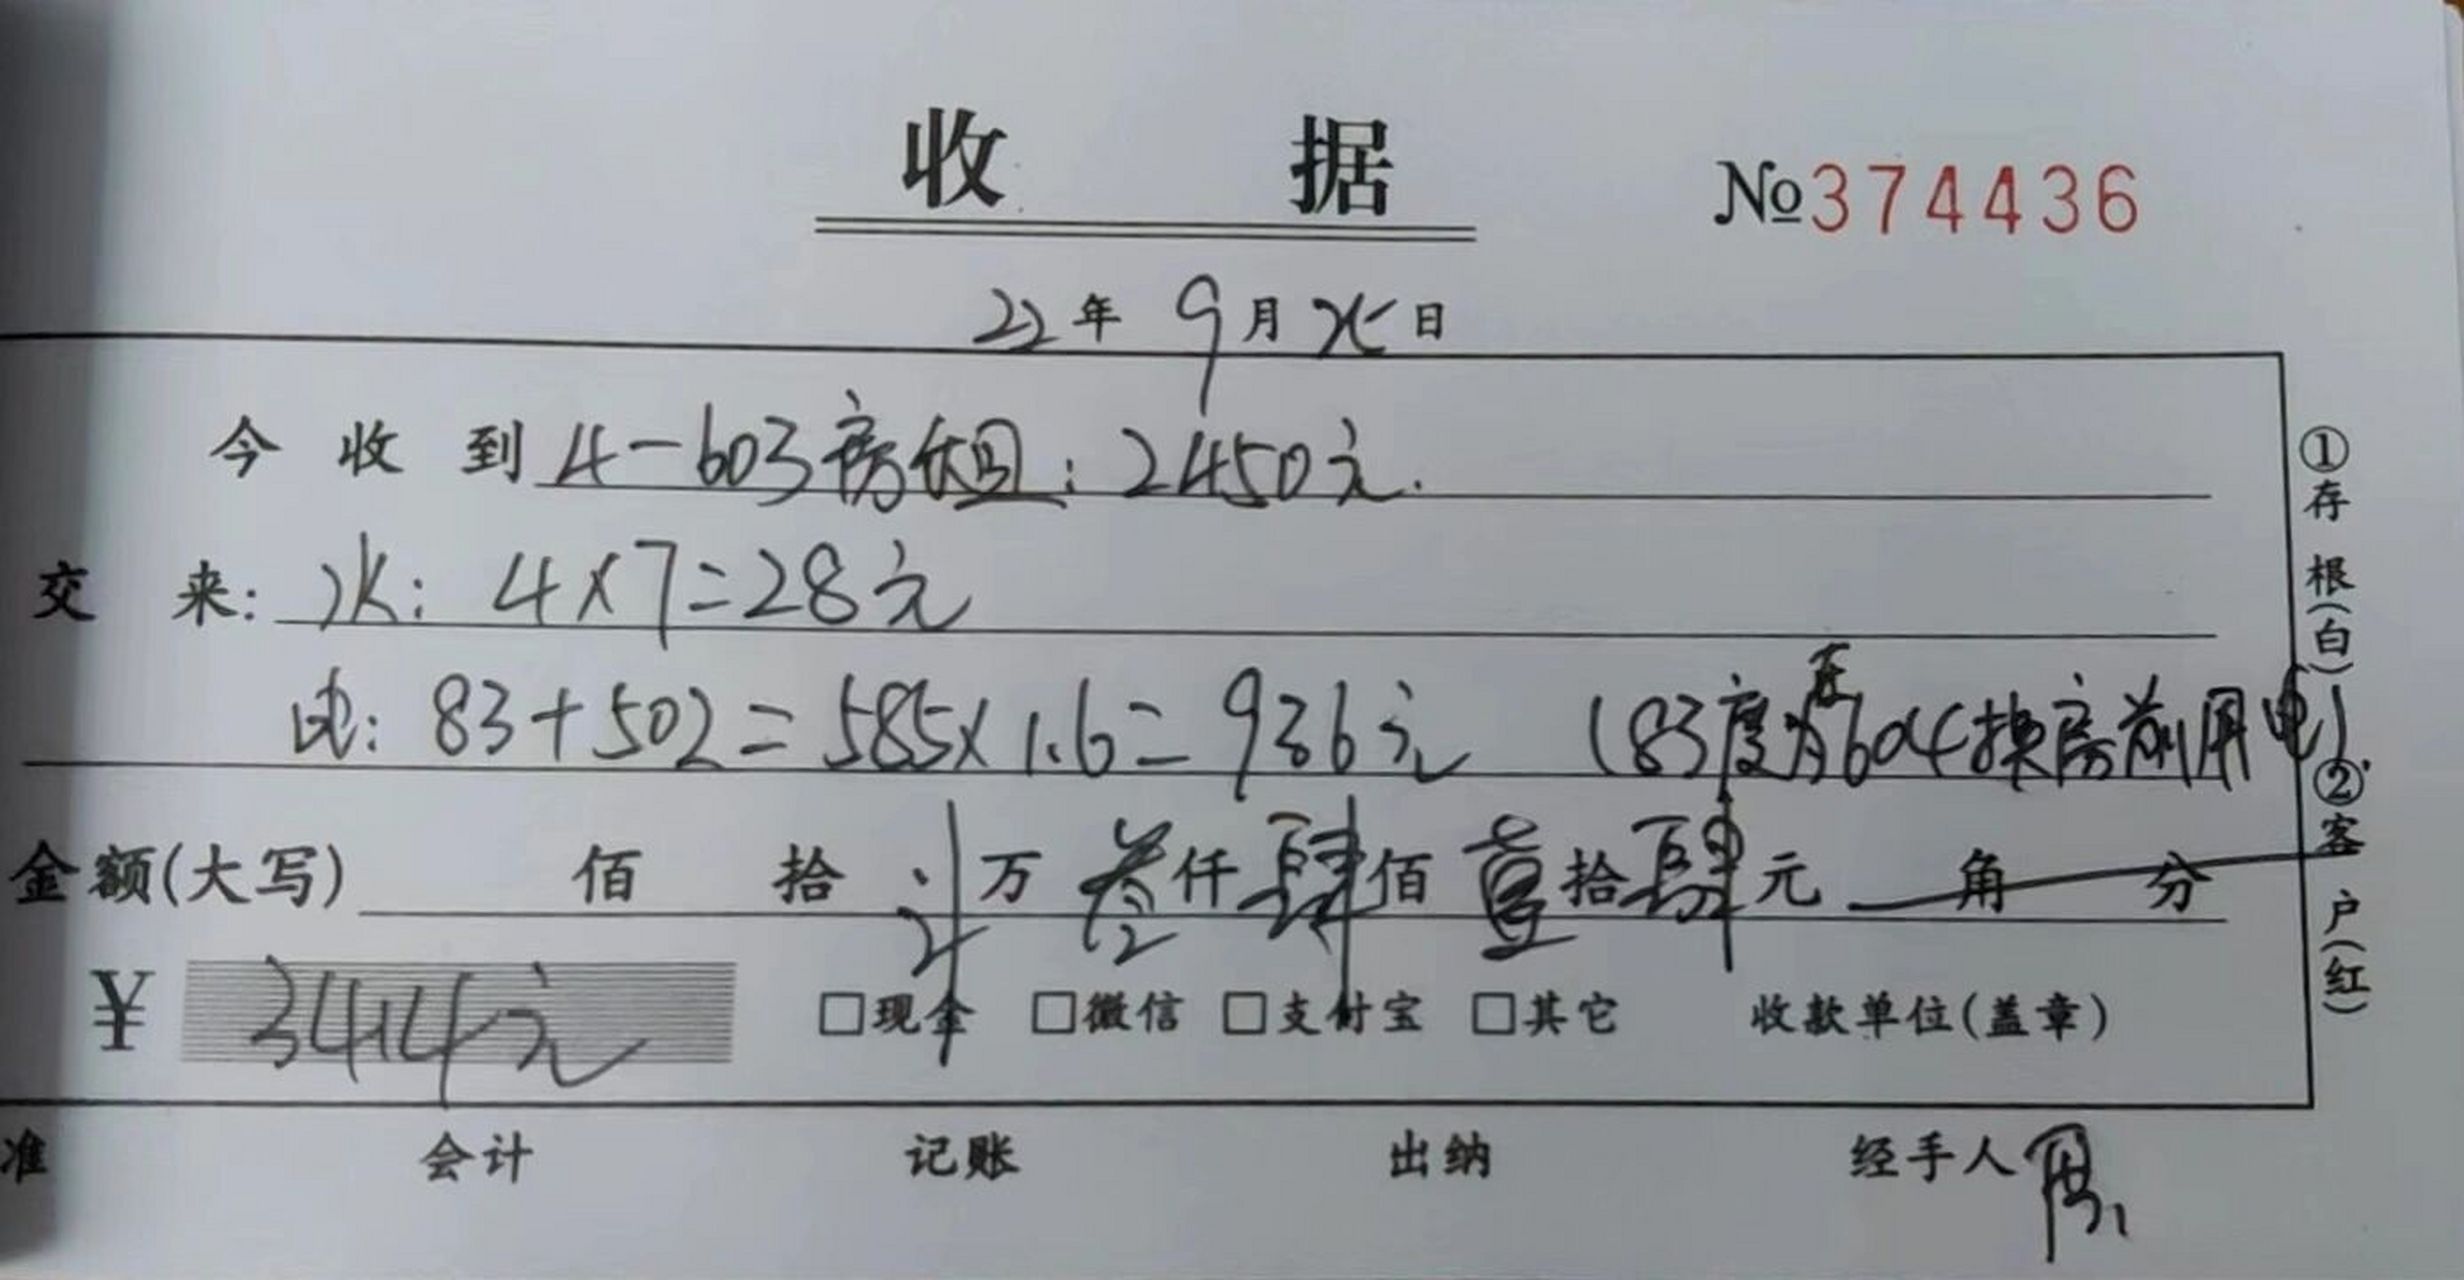 收 据
№374436
22年 9月 日
今 收 到 4-603房租: 2450元.
交 来: 水: 4×7=28元
电: 83+502=585×1.6=936元 (83度为在604换房前用电).
金额(大写) 佰 拾 计 万 叁仟肆佰壹拾肆元 角 分
¥ 3414元 □现金 □微信 □支付宝 □其它 收款单位(盖章)
准 会计 记账 出纳 经手人
①存根(白) ②客户(红)